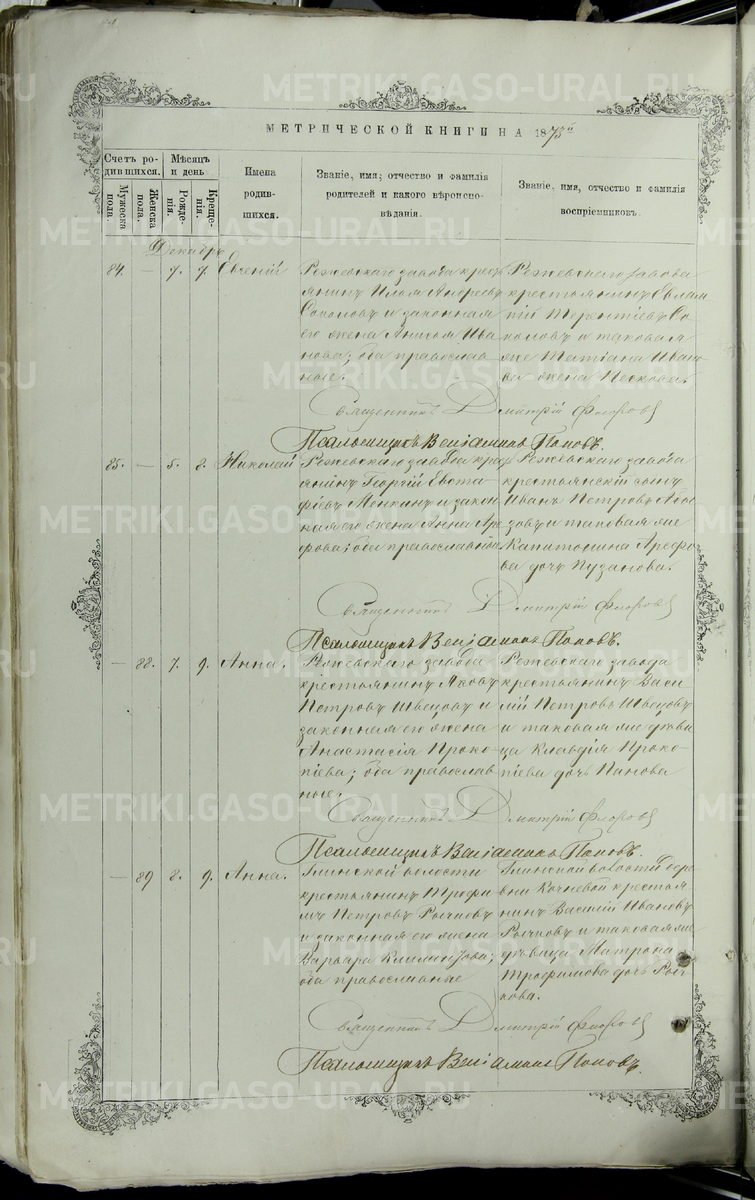 МЕТРИЧЕСКОЙ КНИГИ НА 1873й
Счетъ ро-
дившихся.
Мужеска
пола.
Женска
пола.
Мѣсяцъ
и день
Рожде-
нія.
Креще-
нія.
Имена
родив-
шихся.
Званіе, имя, отчество и фамилія
родителей и какого вѣроиспо-
вѣданія.
Званіе, имя, отчество и фамилія
воспріемниковъ.
Декабрь
84. — 7. 7. Евгеній
Режевскаго завода крес
янинъ Андреевъ
Соколовъ и законная
его жена Ива
нова; оба православ
ные.
Режевскаго завода
крестьянинъ Евлам
пій Терентіевъ Со
коловъ и таковая
же Татіана Ивано
ва жена Пескова.
Священникъ Дмитрій Флоровъ
Псаломщикъ Веніаминъ Поповъ.
85. — 5. 8. Николай
Режевскаго завода крес
янинъ Георгій Евста
фіевъ и закон
ная его жена Анна Аре
фова; оба православные
Режевскаго завода
крестьянскій сынъ
Иванъ Петровъ
и таковая же
Капитонина Арефо
ва дочь Пузанова.
Священникъ Дмитрій Флоровъ
Псаломщикъ Веніаминъ Поповъ.
— 88. 7. 9. Анна.
Режевскаго завода
крестьянинъ Яковъ
Петровъ Швецовъ и
законная его жена
Анастасія Проко
піева; оба православ
ные.
Режевскаго завода
крестьянинъ Васи
лій Петровъ Швецовъ
и таковая же дѣви
ца Клавдія Проко
піева дочь Панова
Священникъ Дмитрій Флоровъ
Псаломщикъ Веніаминъ Поповъ.
— 89 8. 9. Анна.
Глинской волости
крестьянинъ Трофи
мъ Петровъ
и законная его жена
Варвара
оба православные
Глинской волости дере
вни Кочневой крестья
нинъ Василій Ивановъ
и таковая же
дѣвица Матрона
Трофимова дочь
кова.
Священникъ Дмитрій Флоровъ
Псаломщикъ Веніаминъ Поповъ.
METRIKI.GASO-URAL.RU